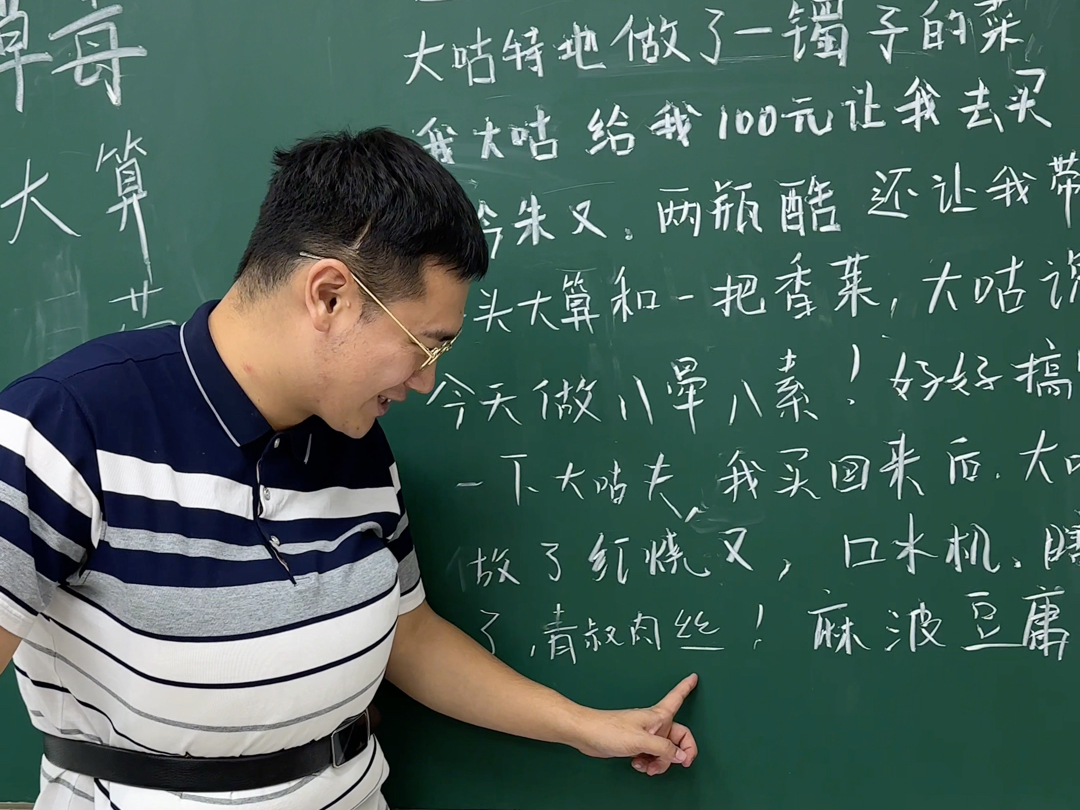 草莓
大算
大咕特地做了一镯子的菜
我大咕给我100元让我去买
今朱又.两瓶酷还让我带
头大算和一把香菜,大咕说
今天做八晕八素!好好搞
一下大咕夫,我买回来后.大咕
做了红烧又,口水机.瞎
了,青叔肉丝!麻波豆庸